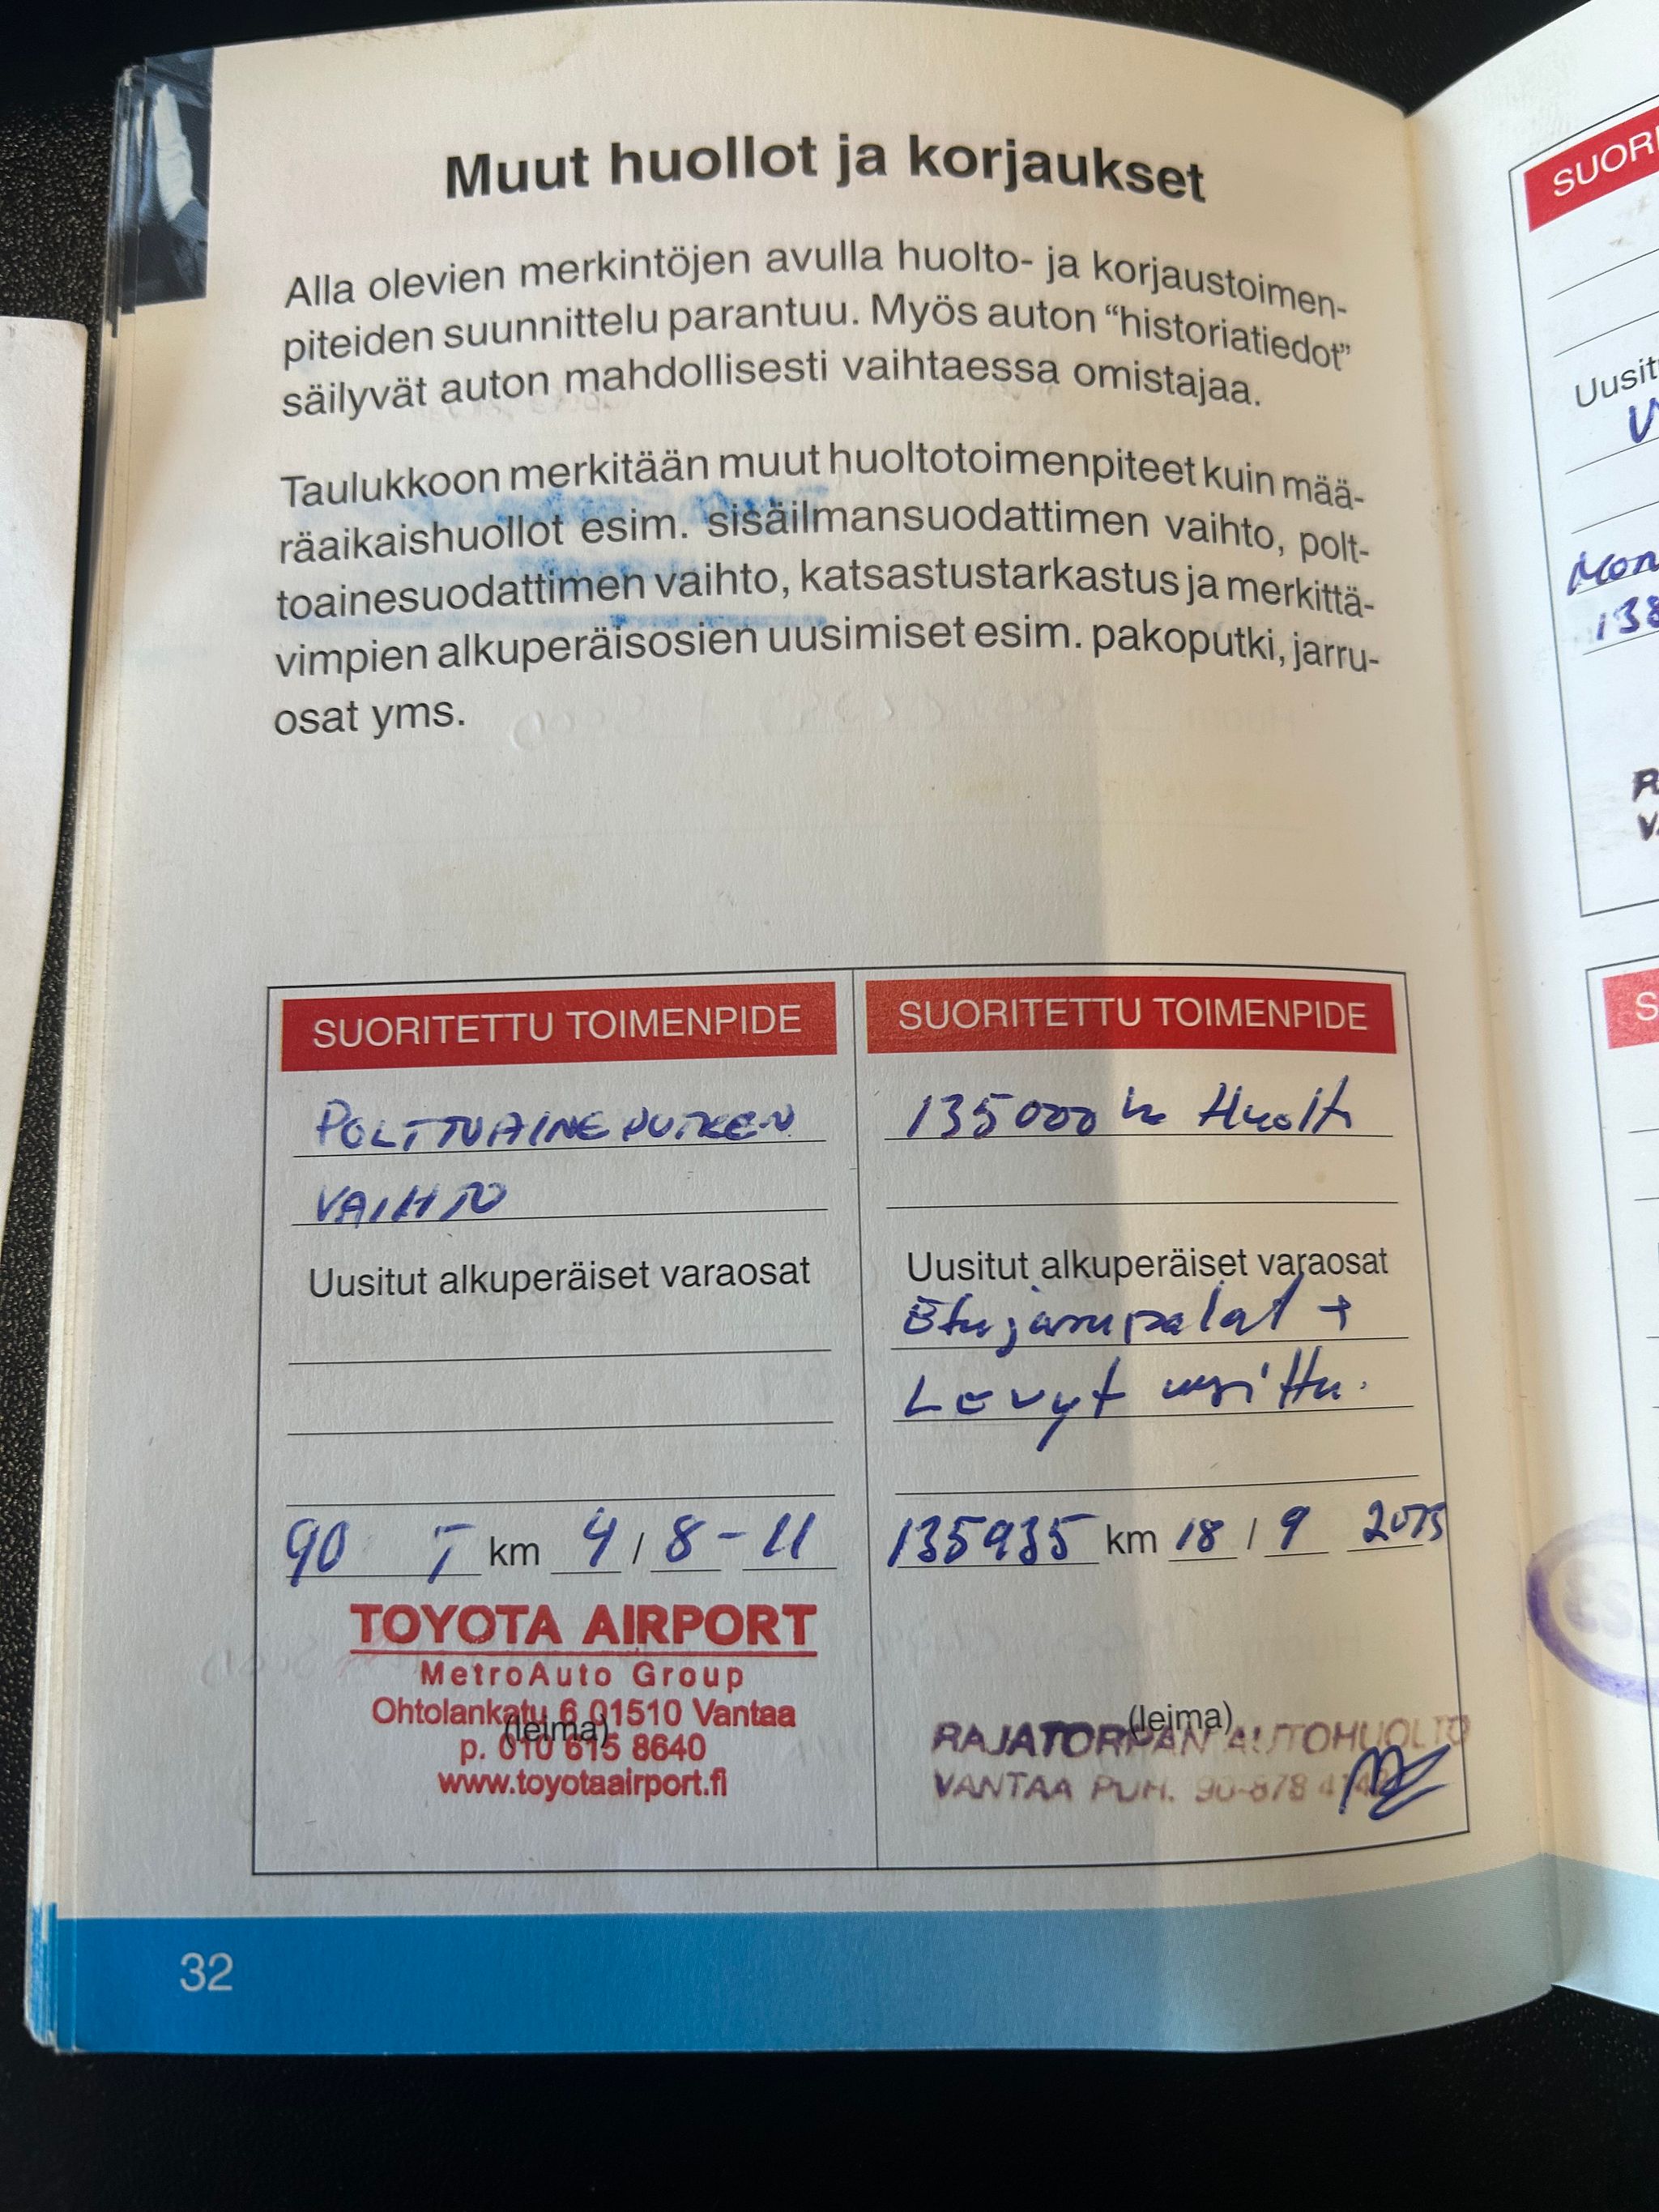 Muut huollot ja korjaukset
Alla olevien merkintöjen avulla huolto- ja korjaustoimen-
piteiden suunnittelu parantuu. Myös auton “historiatiedot”
säilyvät auton mahdollisesti vaihtaessa omistajaa.
Taulukkoon merkitään muut huoltotoimenpiteet kuin mää-
räaikaishuollot esim. sisäilmansuodattimen vaihto, polt-
toainesuodattimen vaihto, katsastustarkastus ja merkittä-
vimpien alkuperäisosien uusimiset esim. pakoputki, jarru-
osat yms.
SUORITETTU TOIMENPIDE
POLTTOAINEPUTKEN
VAIHTO
Uusitut alkuperäiset varaosat
90 T km 4 / 8 - 11
TOYOTA AIRPORT
MetroAuto Group
Ohtolankatu 6 01510 Vantaa
(leima)
p. 010 615 8640
www.toyotaairport.fi
SUORITETTU TOIMENPIDE
135000 Huolto
Uusitut alkuperäiset varaosat
Etujarrupalat +
Levyt uusittu.
135935 km 18 / 9
(leima)
RAJATORPAN AUTOHUOLTO
VANTAA PUH.
32
SUORI
Uusit
138